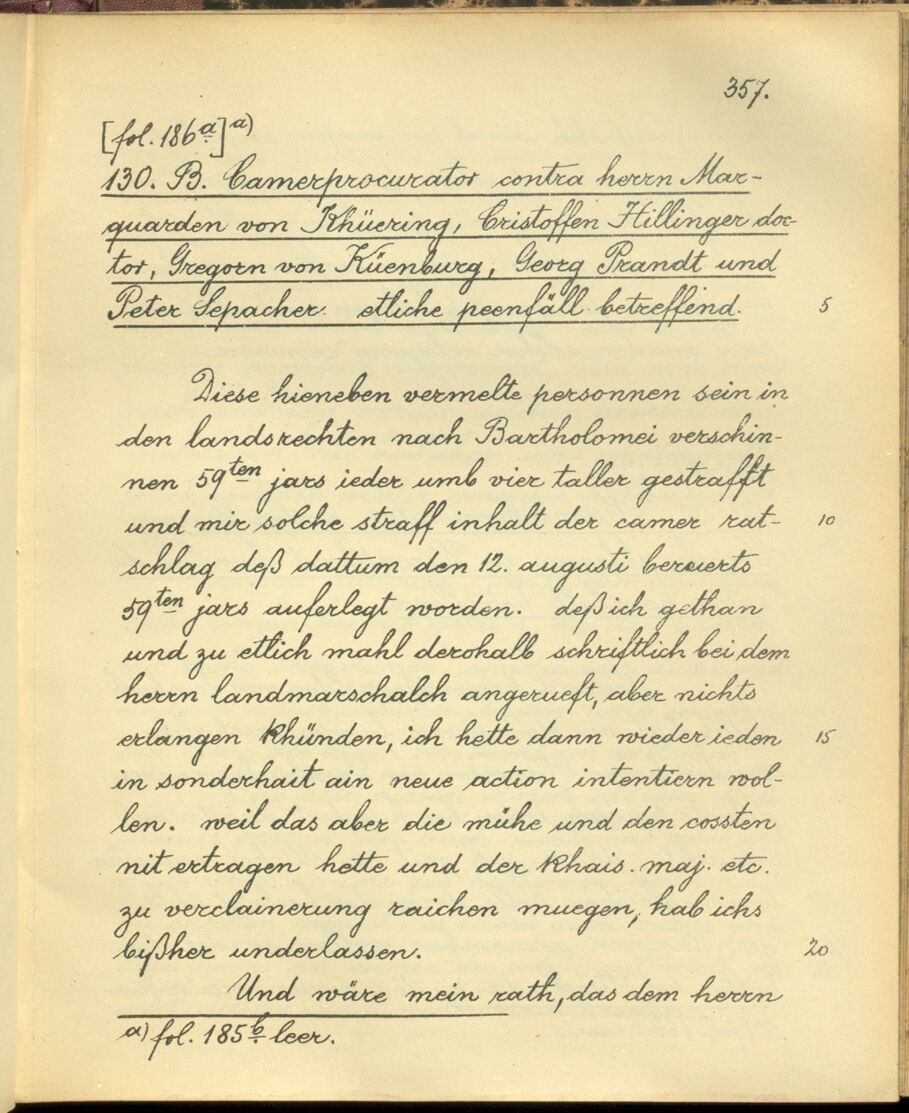 357.
[fol. 186a.]a)
130. B. Camerprocurator contra herrn Mar-
quarden von Khüering, Cristoffen Hillinger doc-
tor, Gregorn von Küenburg, Georg Prandt und
Peter Sepacher etliche peenfäll betreffend. 5
Diese hieneben vermelte personnen sein in
den landsrechten nach Bartholomei verschin-
nen 59ten jars ieder umb vier taller gestrafft
und mir solche straff inhalt der camer rat- 10
schlag deß dattum den 12. augusti berüerts
59ten jars auferlegt worden. deß ich gethan
und zu etlich mahl derohalb schriftlich bei dem
herrn landmarschalch angerueft, aber nichts
erlangen khünden, ich hette dann wieder ieden 15
in sonderhait ain neue action intentiern wol-
len. weil das aber die mühe und den cossten
nit ertragen hette und der khais. maj. etc.
zu verclainerung raichen muegen, hab ichs
bißher underlassen. 20
Und wäre mein rath, das dem herrn
a) fol. 185b. leer.